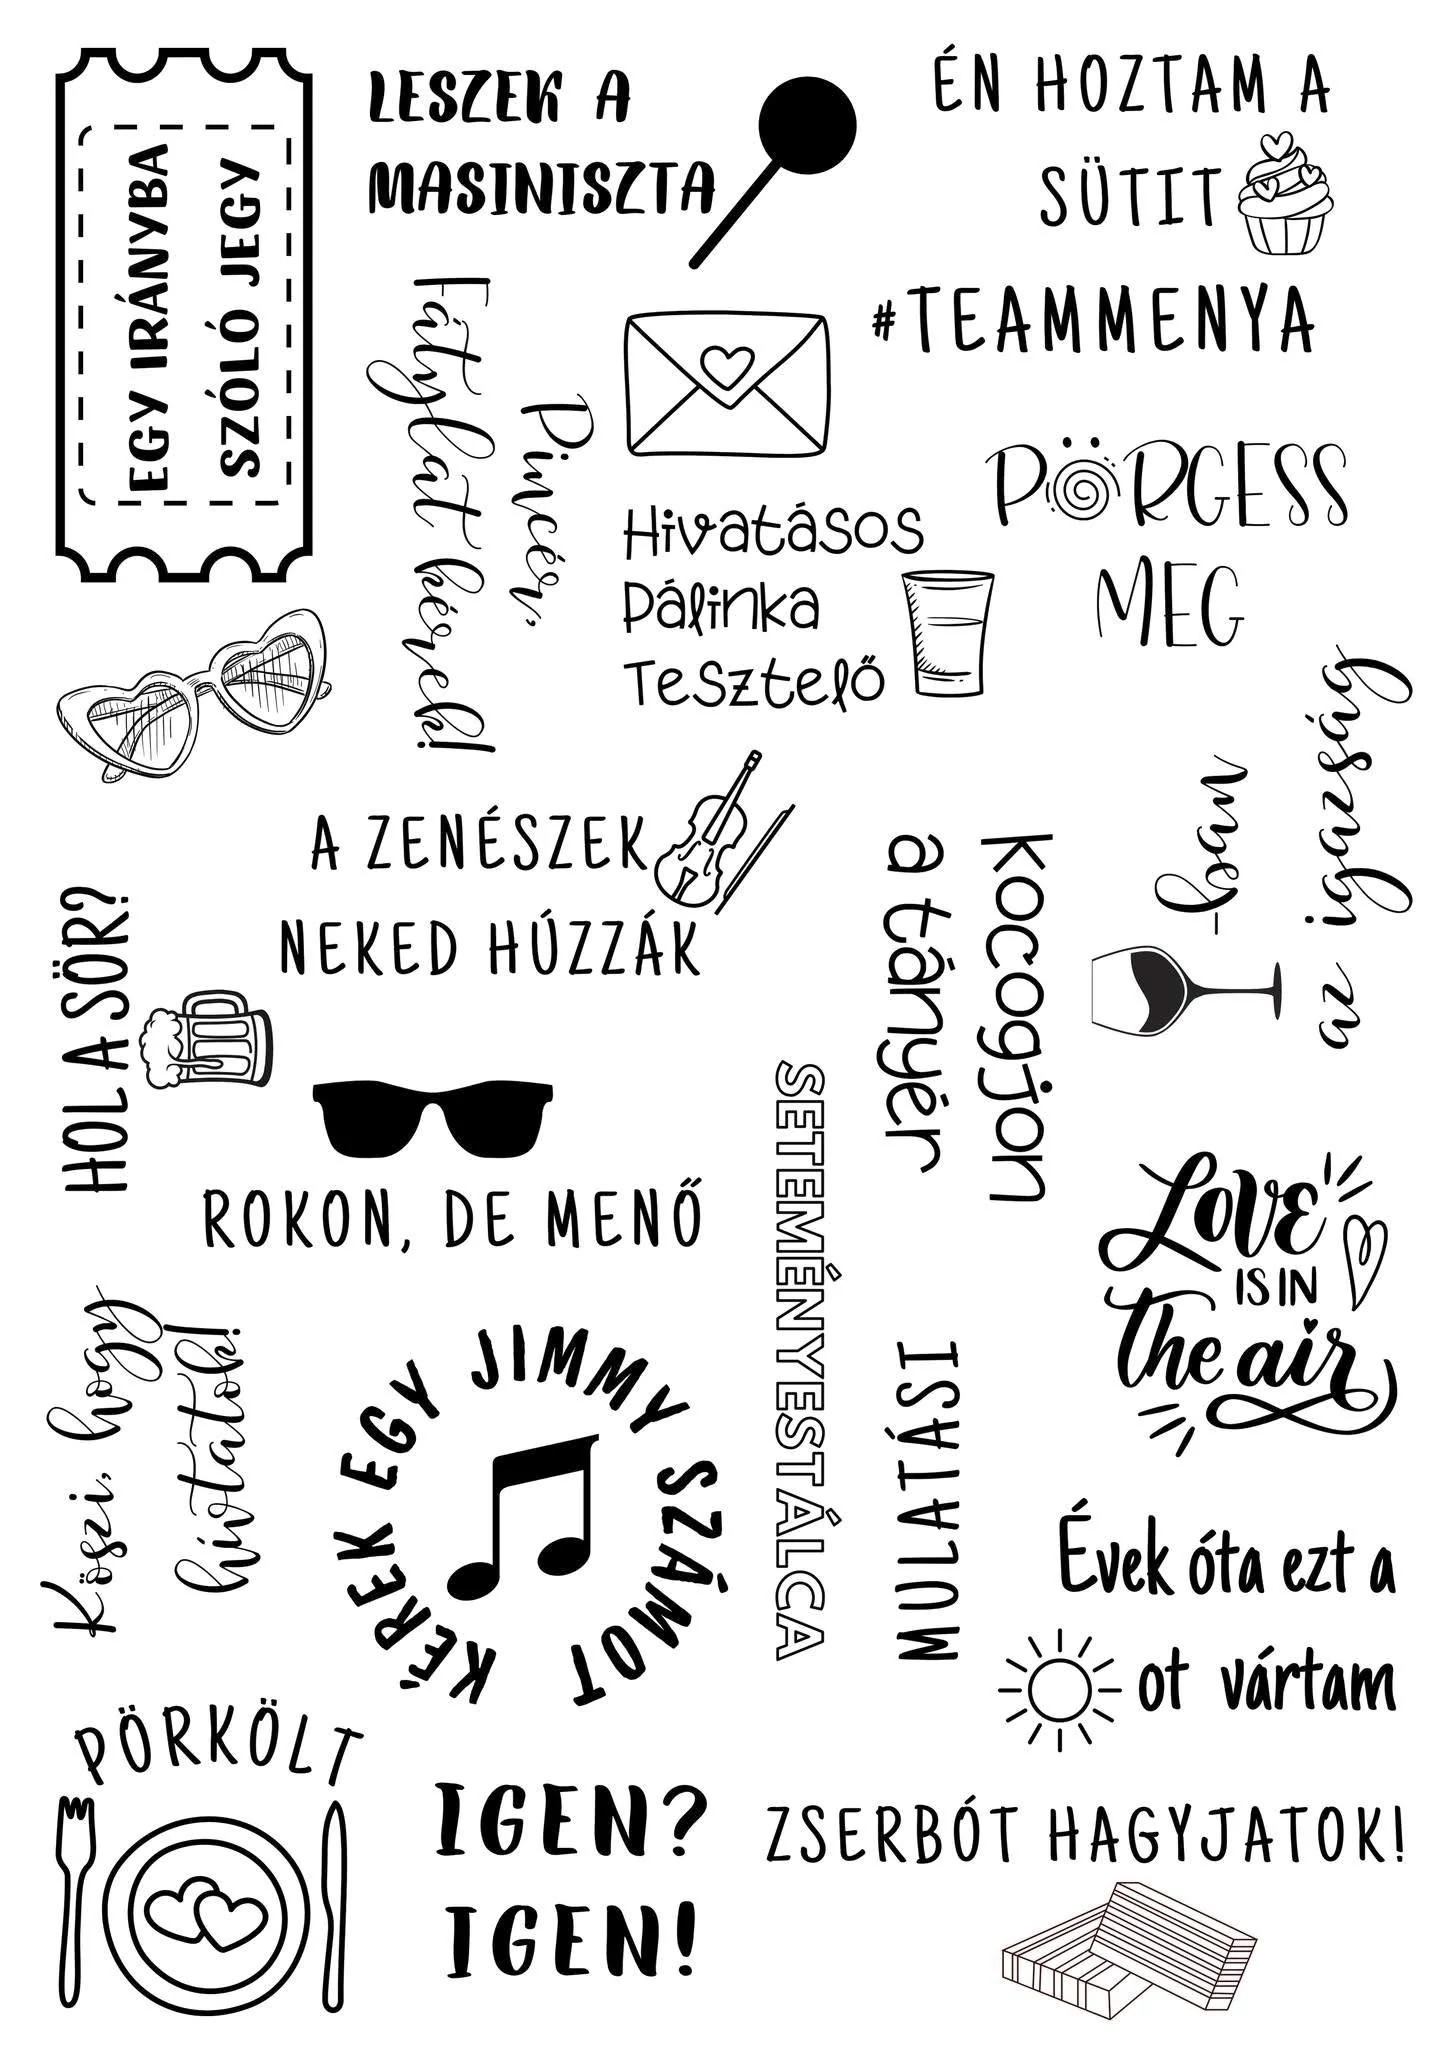 EGY IRÁNYBA
SZÓLÓ JEGY
LESZEK A
MASINISZTA
ÉN HOZTAM A
SÜTIT
#TEAMMENYA
Pincér,
Fátylat kérek!
PÖRGESS
MEG
Hivatásos
Pálinka
Tesztelő
-ban
az igazság
A ZENÉSZEK
NEKED HÚZZÁK
kocogjon
a tányér
HOL A SÖR?
ROKON, DE MENŐ
SETEMÉNYESTÁLCA
LOVE
IS IN
The air
Köszi, hogy
hívtatok!
KÉREK EGY JIMMY SZÁMOT
MULATÁSI
Évek óta ezt a
ot vártam
PÖRKÖLT
IGEN?
IGEN!
ZSERBÓT HAGYJATOK!